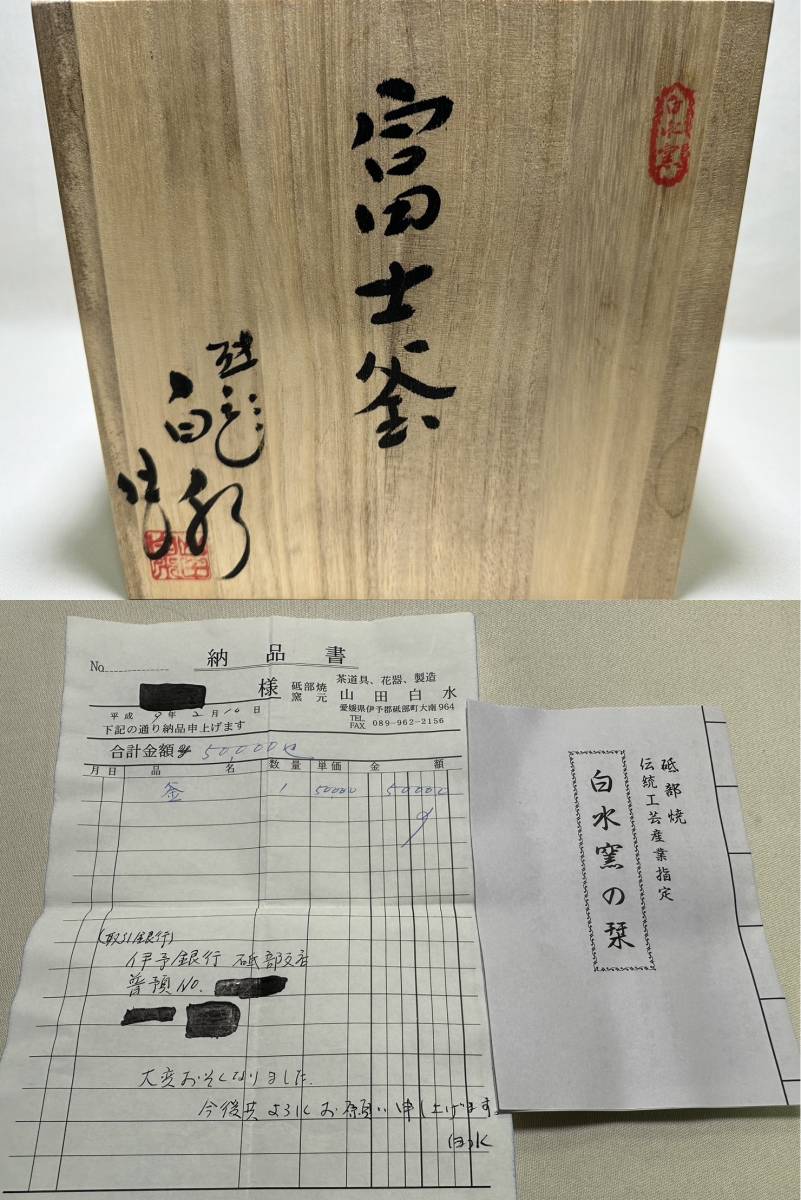 富士釜
白水窯
砥部
白水
作
納品書
No.
様
平成 9年 2月 10日
下記の通り納品申上げます
砥部焼
窯元
茶道具、花器、製造
山田白水
愛媛県伊予郡砥部町大南964
TEL
FAX 089-962-2156
合計金額 50,000
月日 品名 数量 単価 金額
釜 1 50000 50000
(取引銀行)
伊予銀行 砥部支店
普預 No.
大変おそくなりました.
今後共よろしくお願い申し上げます。
白水
砥部焼
伝統工芸産業指定
白水窯の栞